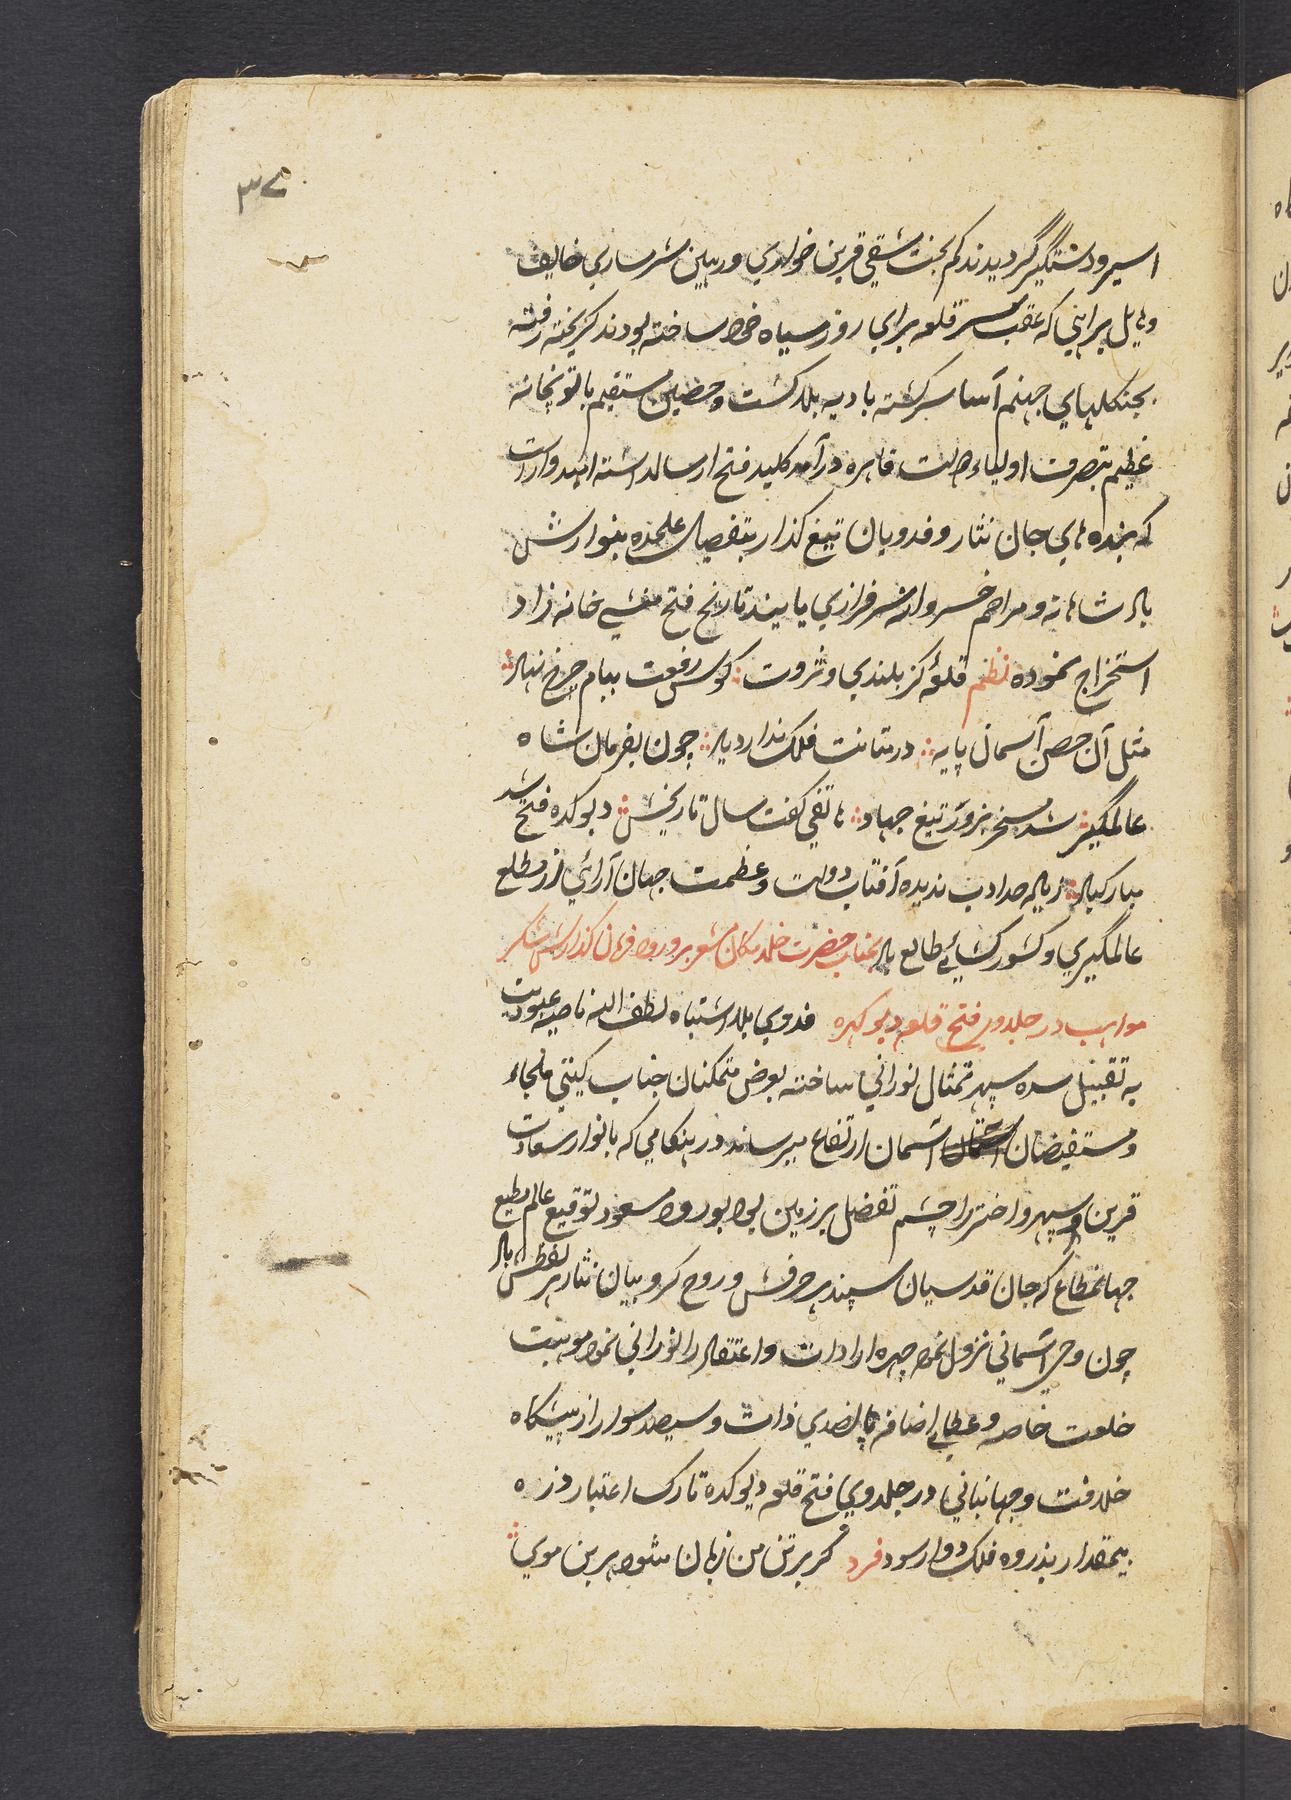 ۳۷
اسیر و دستگیر گردیدند کم بخت شقی قرین خواری و رهین شرمساری خایف
و هایل براهی که عقب قلعه برای روز سیاه خود ساخته بودند گریخته رفته
بجنکلهای جهنم آسا سرکشته بادیه هلاکت کشت و حصین مستقیم با توپخانه
عظیم بتصرف اولیاء دولت قاهره درآمد کلید فتح ارسالداشته امیدوارست
که بنده های جان نثار و فدویان تیغ گذار بتفصیل علحده بنوازش
بادشاهانه و مراحم خسروانه سرفرازی یابند تاریخ فتح منشی خانه زاد
استخراج نموده نظم قلعهٔ کز بلندی و ثروت کوس رفعت ببام چرخ نهاد
مثل آن حصن آسمان پایه در متانت فلک ندارد یاد چون بفرمان شاه
عالمگیر شد مسخر بزور تیغ جهاد هاتفی گفت سال تاریخش دیوکده فتح شد
مبارکباد زیاده حد ادب ندیده آفتاب دولت و عظمت جهان آرائی از مطلع
عالمگیری و کشور کشائی طالع باد بجناب حضرت خلد مکان مشعر بر ورود فرمان گذارش شکر
مواهب در جلدوی فتح قلعه دیوکره فدوی بلا اشتباه لطف الله ناصیه عبودیت
به تقبیل سده سپهر تمثال نورانی ساخته بعرض متمکنان جناب گیتی ملجاء
و مستفیضان آستان آسمان ارتفاع میرساند در هنکامی که بانوار سعادت
قرین و سپهر و اختر را چشم تفضل بر زمین بود ورود مسعود توقیع عالم مطیع
جهانمطاع که جان قدسیان سپند هر حرفش و روح کروبیان نثار هر لفظش باد
چون وحی آسمانی نزول نمود چهره ارادات و اعتقاد را نورانی نمود موهبت
خلعت خاصه و عطای اضافه پانصدی ذات و سیصد سوار از پیشکاه
خلافت و جهانبانی در جلدوی فتح قلعه دیوکده تارک اعتبار ذره
بیمقدار بذروه فلک دوار سود فرد گر بر تن من زبان شود هر بن موی